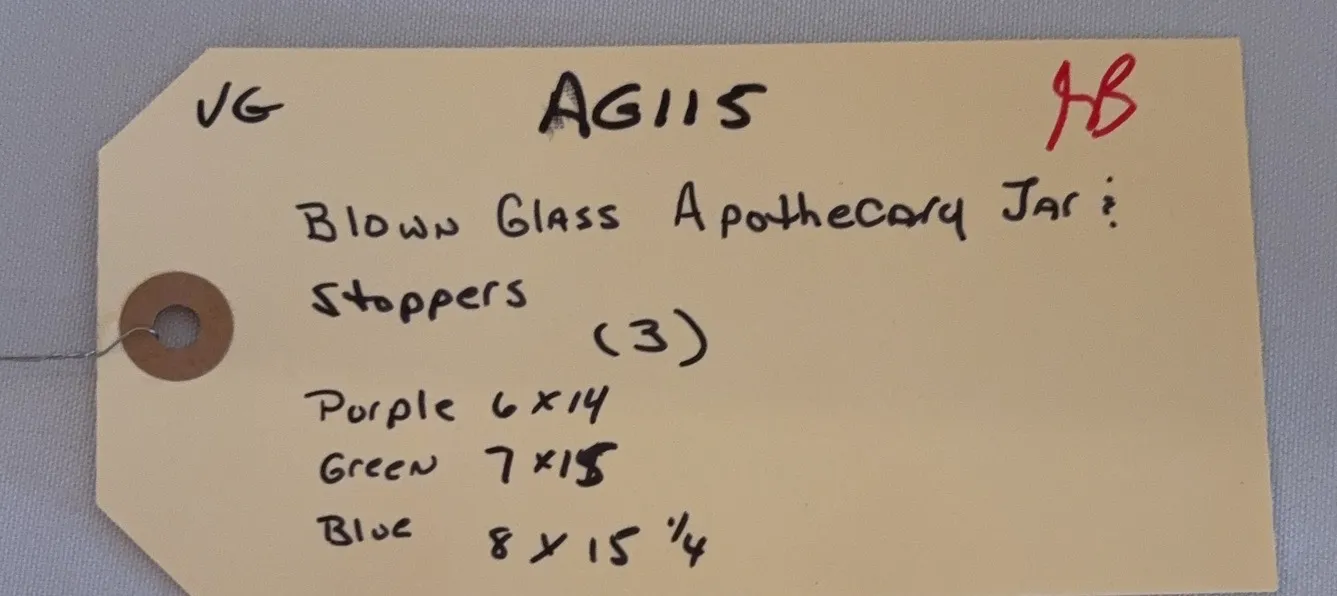 VG AG115 JB
Blown Glass Apothecary Jar &
Stoppers
(3)
Purple 6 x 14
Green 7 x 15
Blue 8 x 15 1/4